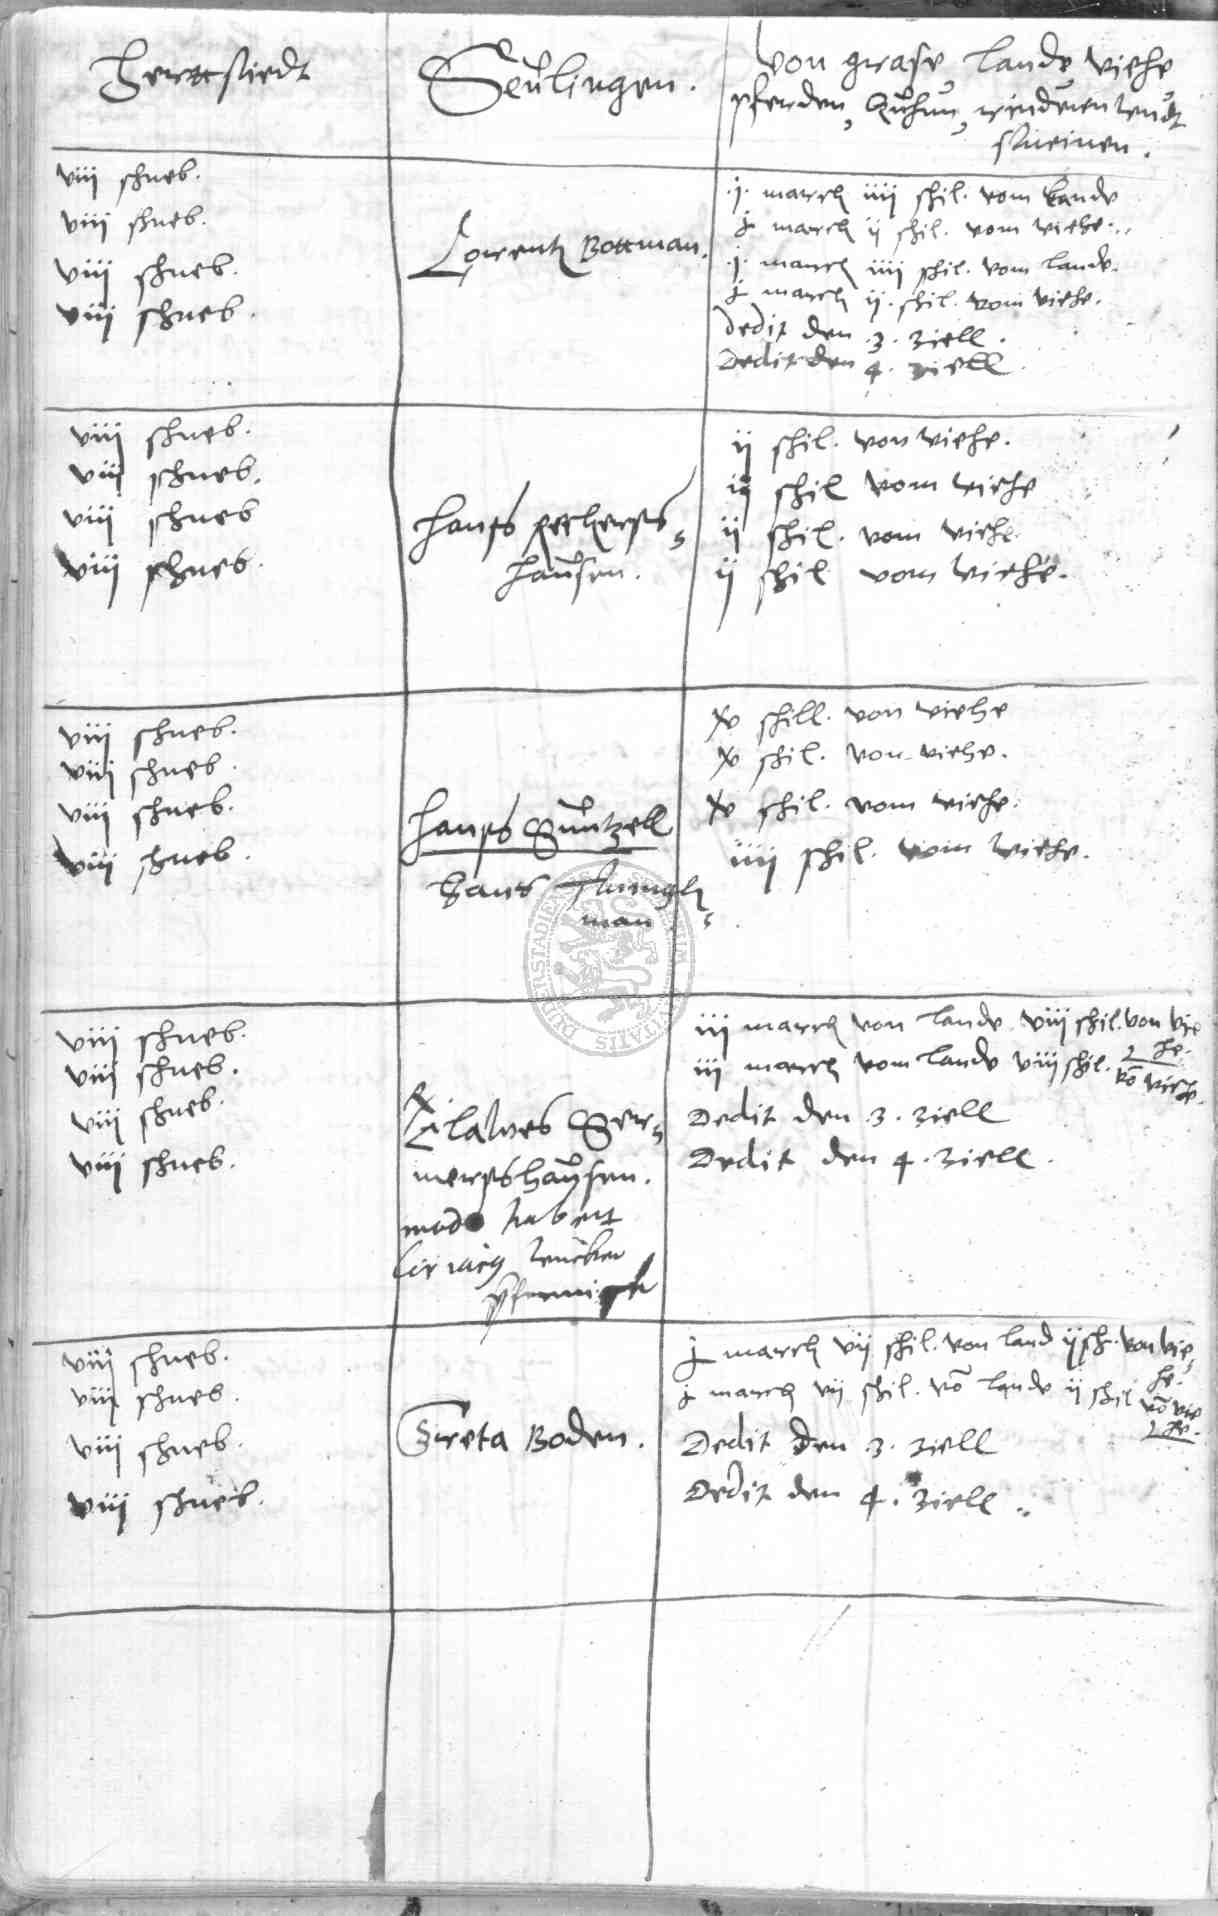 Herttstedt
Seulingen.
von grase, lande, viehe,
pferden, kuhen, rinderen undt
schweinen.
viij schneb.
viij schneb.
viij schneb.
viij schneb.
Lorentz Bottman.
j. march iiij schil. vom lande
j march ij schil. vom viehe.
j. march iiij schil. vom lande.
j march ij. schil. vom viehe.
Dedit den .3. ziell.
Dedit den 4. ziell.
viij schneb.
viij schneb.
viij schneb
viij schneb.
Hans
hausen.
ij schil. von viehe.
ij schil vom viehe
ij schil. vom viehe.
ij schil vom viehe.
viij schneb.
viij schneb.
viij schneb.
viij schneb.
Hans Guntzell
Hans
man
xv schill. von viehe
xv schil. von viehe.
xv schil. vom viehe.
iiij schil. vom viehe.
viij schneb.
viij schneb.
viij schneb.
viij schneb.
Klawes Ger-
mershausen.
modo habet
iij march von lande viij schil. von vie
he.
iij march vom lande viij schil. võ viehe.
Dedit den .3. ziell
Dedit den 4. ziell.
viij schneb.
viij schneb.
viij schneb.
viij schneb.
Greta Boden.
j march vij schil. von land ij sch. von vie-
he.
j march vij schil. võ lande ij schil võ vie
he.
Dedit den .3. ziell
Dedit den 4. ziell.